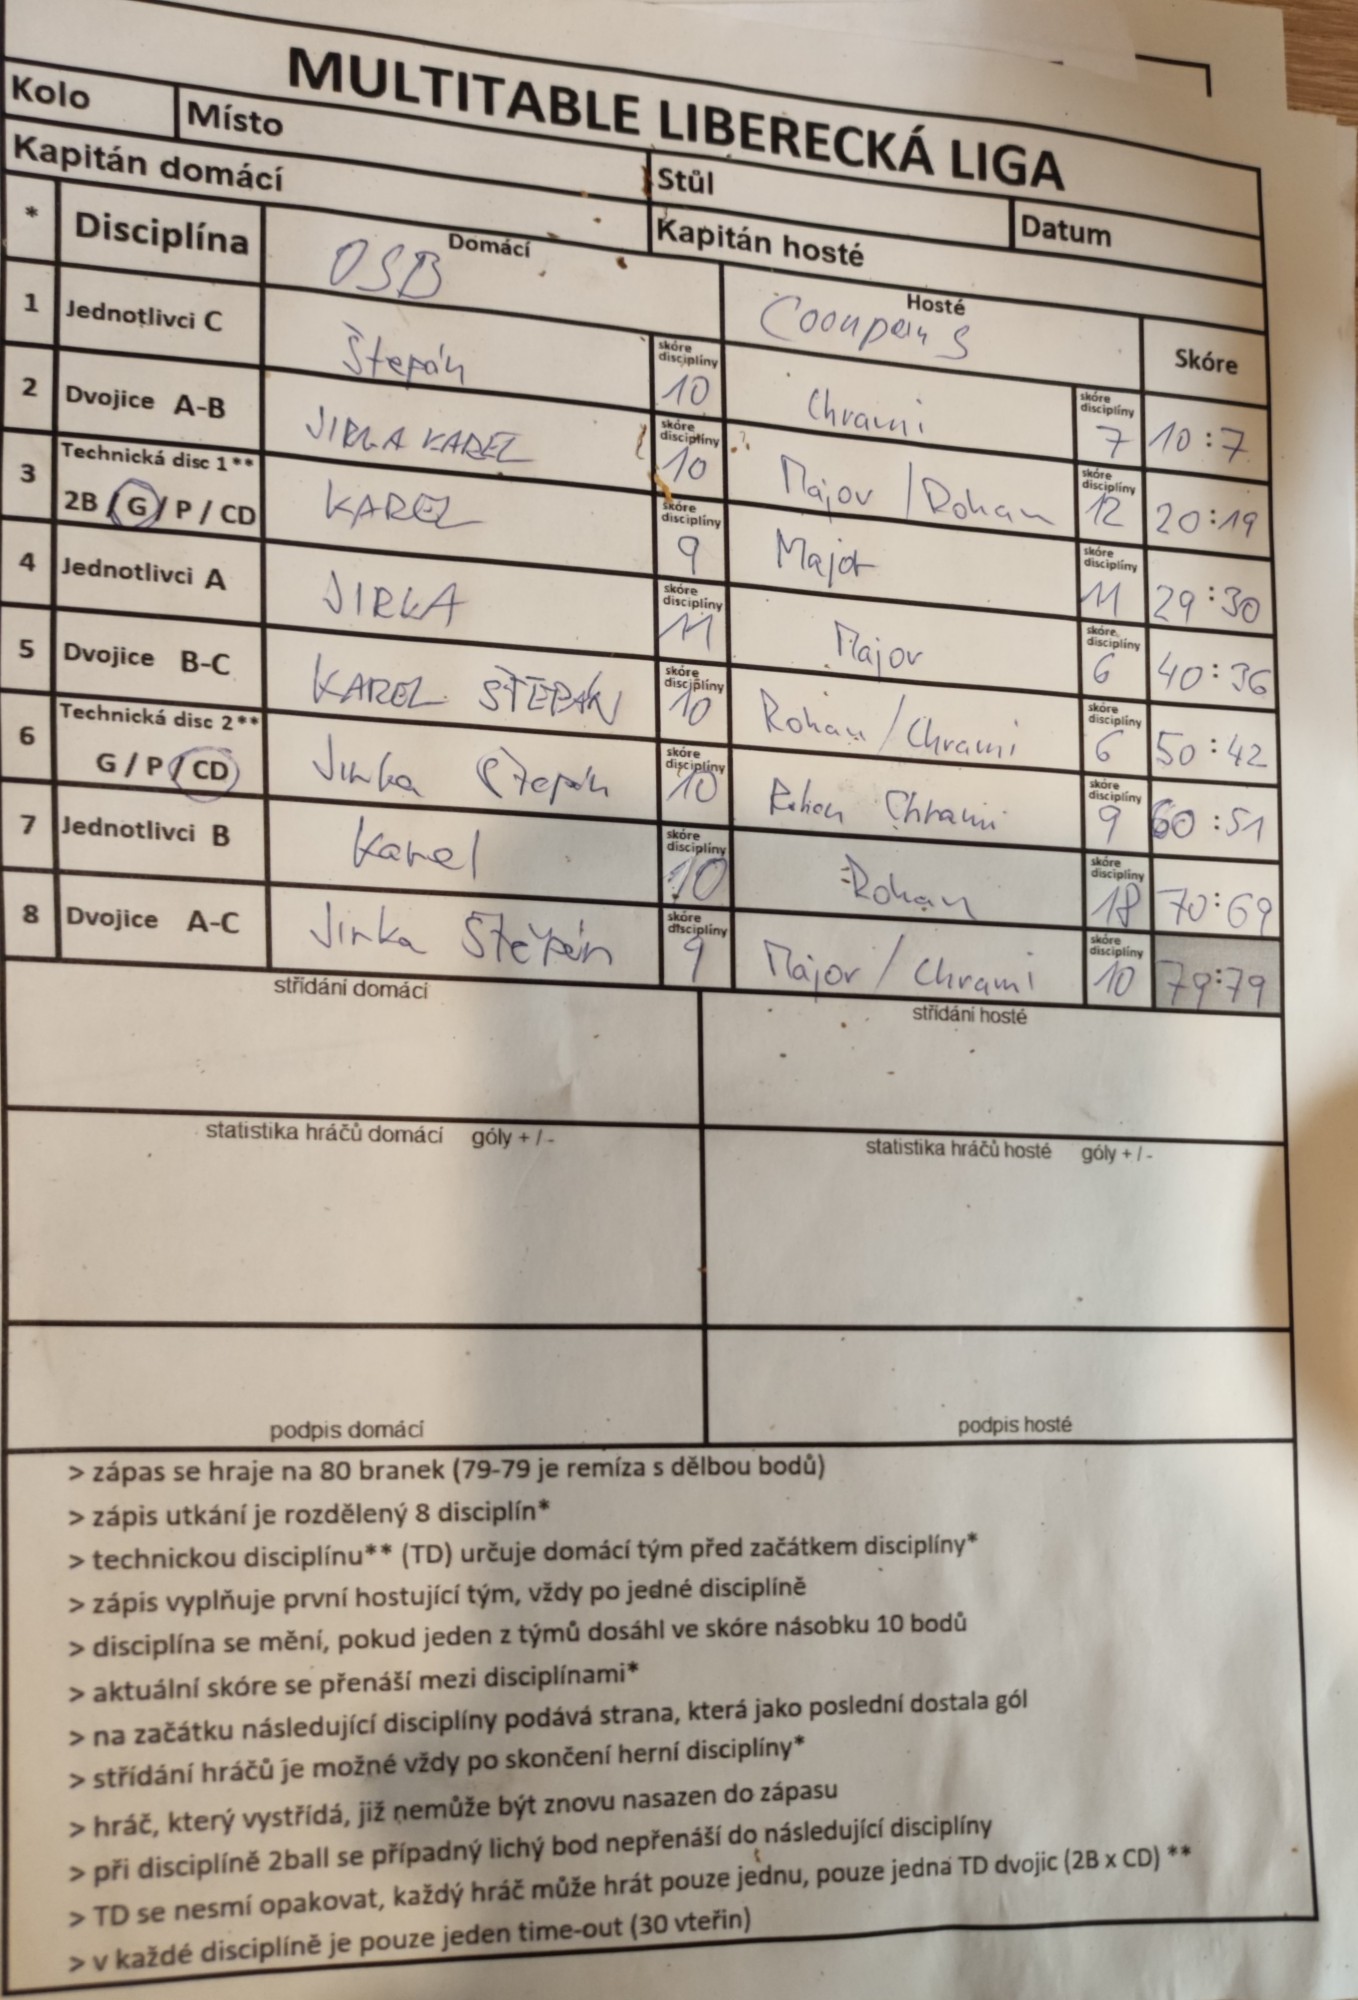 MULTITABLE LIBERECKÁ LIGA
Kolo Místo Stůl Datum
Kapitán domácí Kapitán hosté
* Disciplína Domácí OSB Hosté Skóre
1 Jednotlivci C Štepán skóre disciplíny 10 Chrami skóre disciplíny 7 10:7
2 Dvojice A-B JIRKA KAREL skóre disciplíny 10 Major / Rohan skóre disciplíny 12 20:19
3 Technická disc 1** 2B / G / P / CD KAREL skóre disciplíny 9 Major skóre disciplíny 11 29:30
4 Jednotlivci A JIRKA skóre disciplíny 11 Major skóre disciplíny 6 40:36
5 Dvojice B-C KAREL ŠTEPÁN skóre disciplíny 10 Rohan / Chrami skóre disciplíny 6 50:42
6 Technická disc 2** G / P / CD Jirka Štepán skóre disciplíny 10 Rohan Chrami skóre disciplíny 9 60:51
7 Jednotlivci B Karel skóre disciplíny 10 Rohan skóre disciplíny 18 70:69
8 Dvojice A-C Jirka Štěpán skóre disciplíny 9 Major / Chrami skóre disciplíny 10 79:79
střídání domácí střídání hosté
statistika hráčů domácí góly + / - statistika hráčů hosté góly + / -
podpis domácí podpis hosté
> zápas se hraje na 80 branek (79-79 je remíza s dělbou bodů)
> zápis utkání je rozdělený 8 disciplín*
> technickou disciplínu** (TD) určuje domácí tým před začátkem disciplíny*
> zápis vyplňuje první hostující tým, vždy po jedné disciplíně
> disciplína se mění, pokud jeden z týmů dosáhl ve skóre násobku 10 bodů
> aktuální skóre se přenáší mezi disciplínami*
> na začátku následující disciplíny podává strana, která jako poslední dostala gól
> střídání hráčů je možné vždy po skončení herní disciplíny*
> hráč, který vystřídá, již nemůže být znovu nasazen do zápasu
> při disciplíně 2ball se případný lichý bod nepřenáší do následující disciplíny
> TD se nesmí opakovat, každý hráč může hrát pouze jednu, pouze jedna TD dvojic (2B x CD) **
> v každé disciplíně je pouze jeden time-out (30 vteřin)